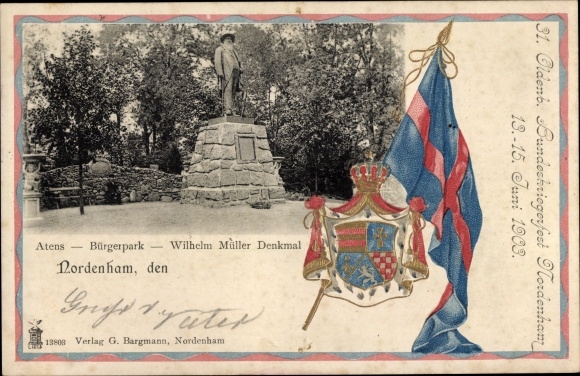 Atens — Bürgerpark — Wilhelm Müller Denkmal
Nordenham, den
Gruß v. Vater
13803 Verlag G. Bargmann, Nordenham
31. Oldenb. Bundeskriegerfest Nordenham
13.-15. Juni 1903.